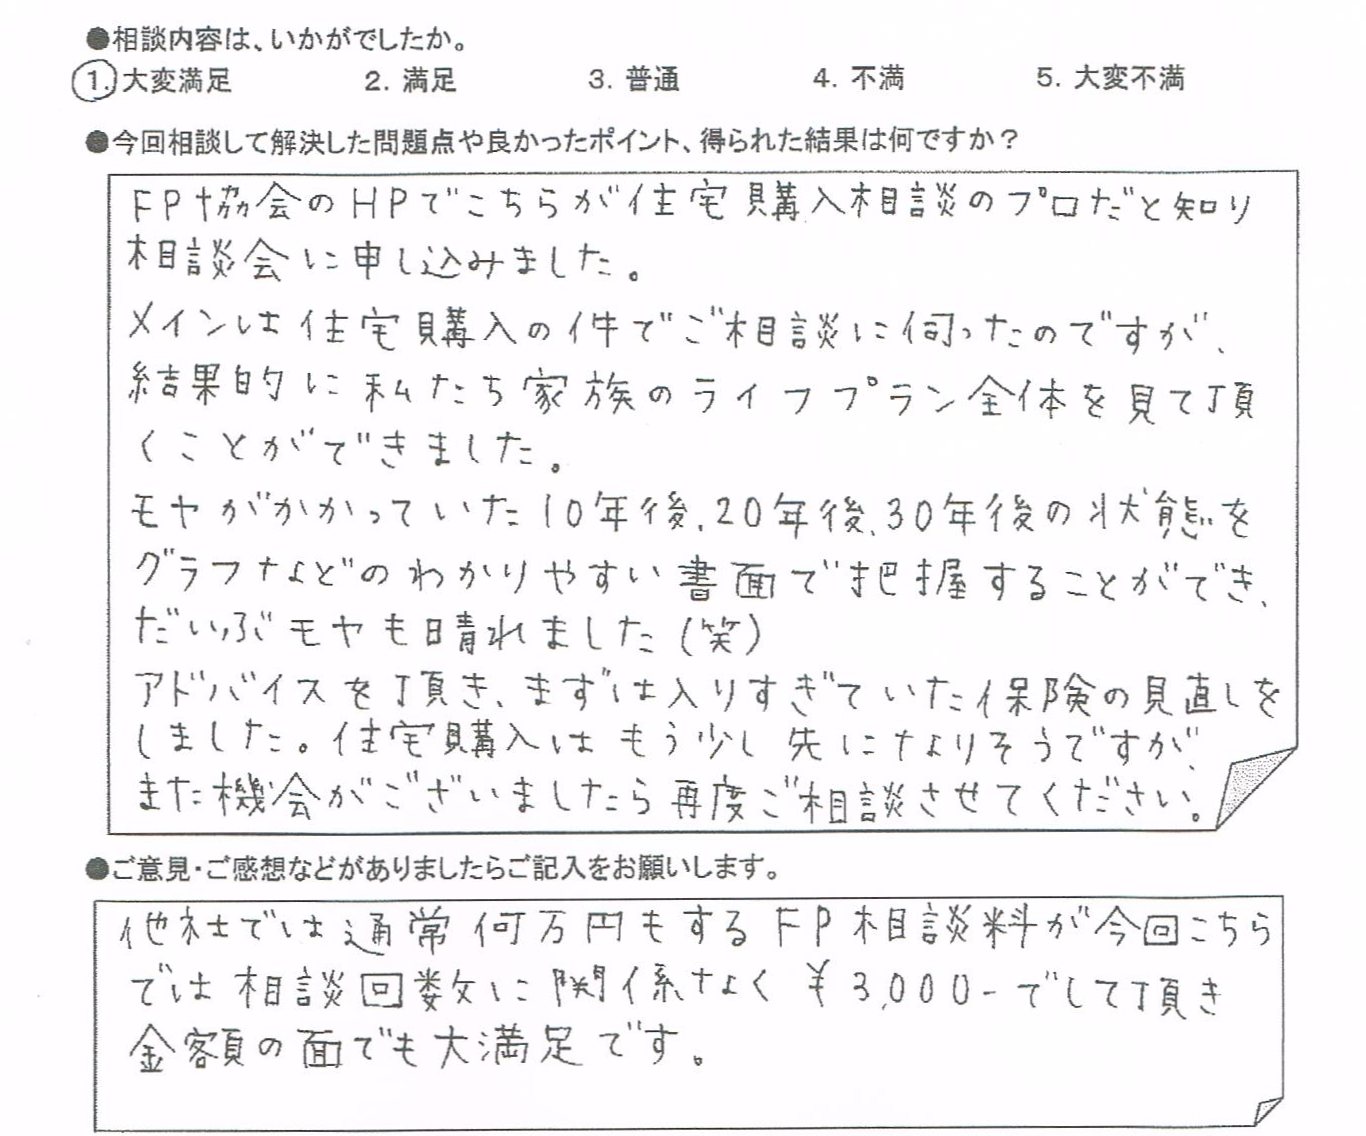 ●相談内容は、いかがでしたか。
1. 大変満足 2. 満足 3. 普通 4. 不満 5. 大変不満
●今回相談して解決した問題点や良かったポイント、得られた結果は何ですか？
FP協会のHPでこちらが住宅購入相談のプロだと知り
相談会に申し込みました。
メインは住宅購入の件でご相談に伺ったのですが、
結果的に私たち家族のライフプラン全体を見て頂
くことができました。
モヤがかかっていた10年後、20年後、30年後の状態を
グラフなどのわかりやすい書面で把握することができ、
だいぶモヤも晴れました(笑)
アドバイスを頂き、まずは入りすぎていた保険の見直しを
しました。住宅購入はもう少し先になりそうですが、
また機会がございましたら再度ご相談させてください。
●ご意見・ご感想などがありましたらご記入をお願いします。
他社では通常何万円もするFP相談料が今回こちら
では相談回数に関係なく￥3,000-でして頂き
金額の面でも大満足です。